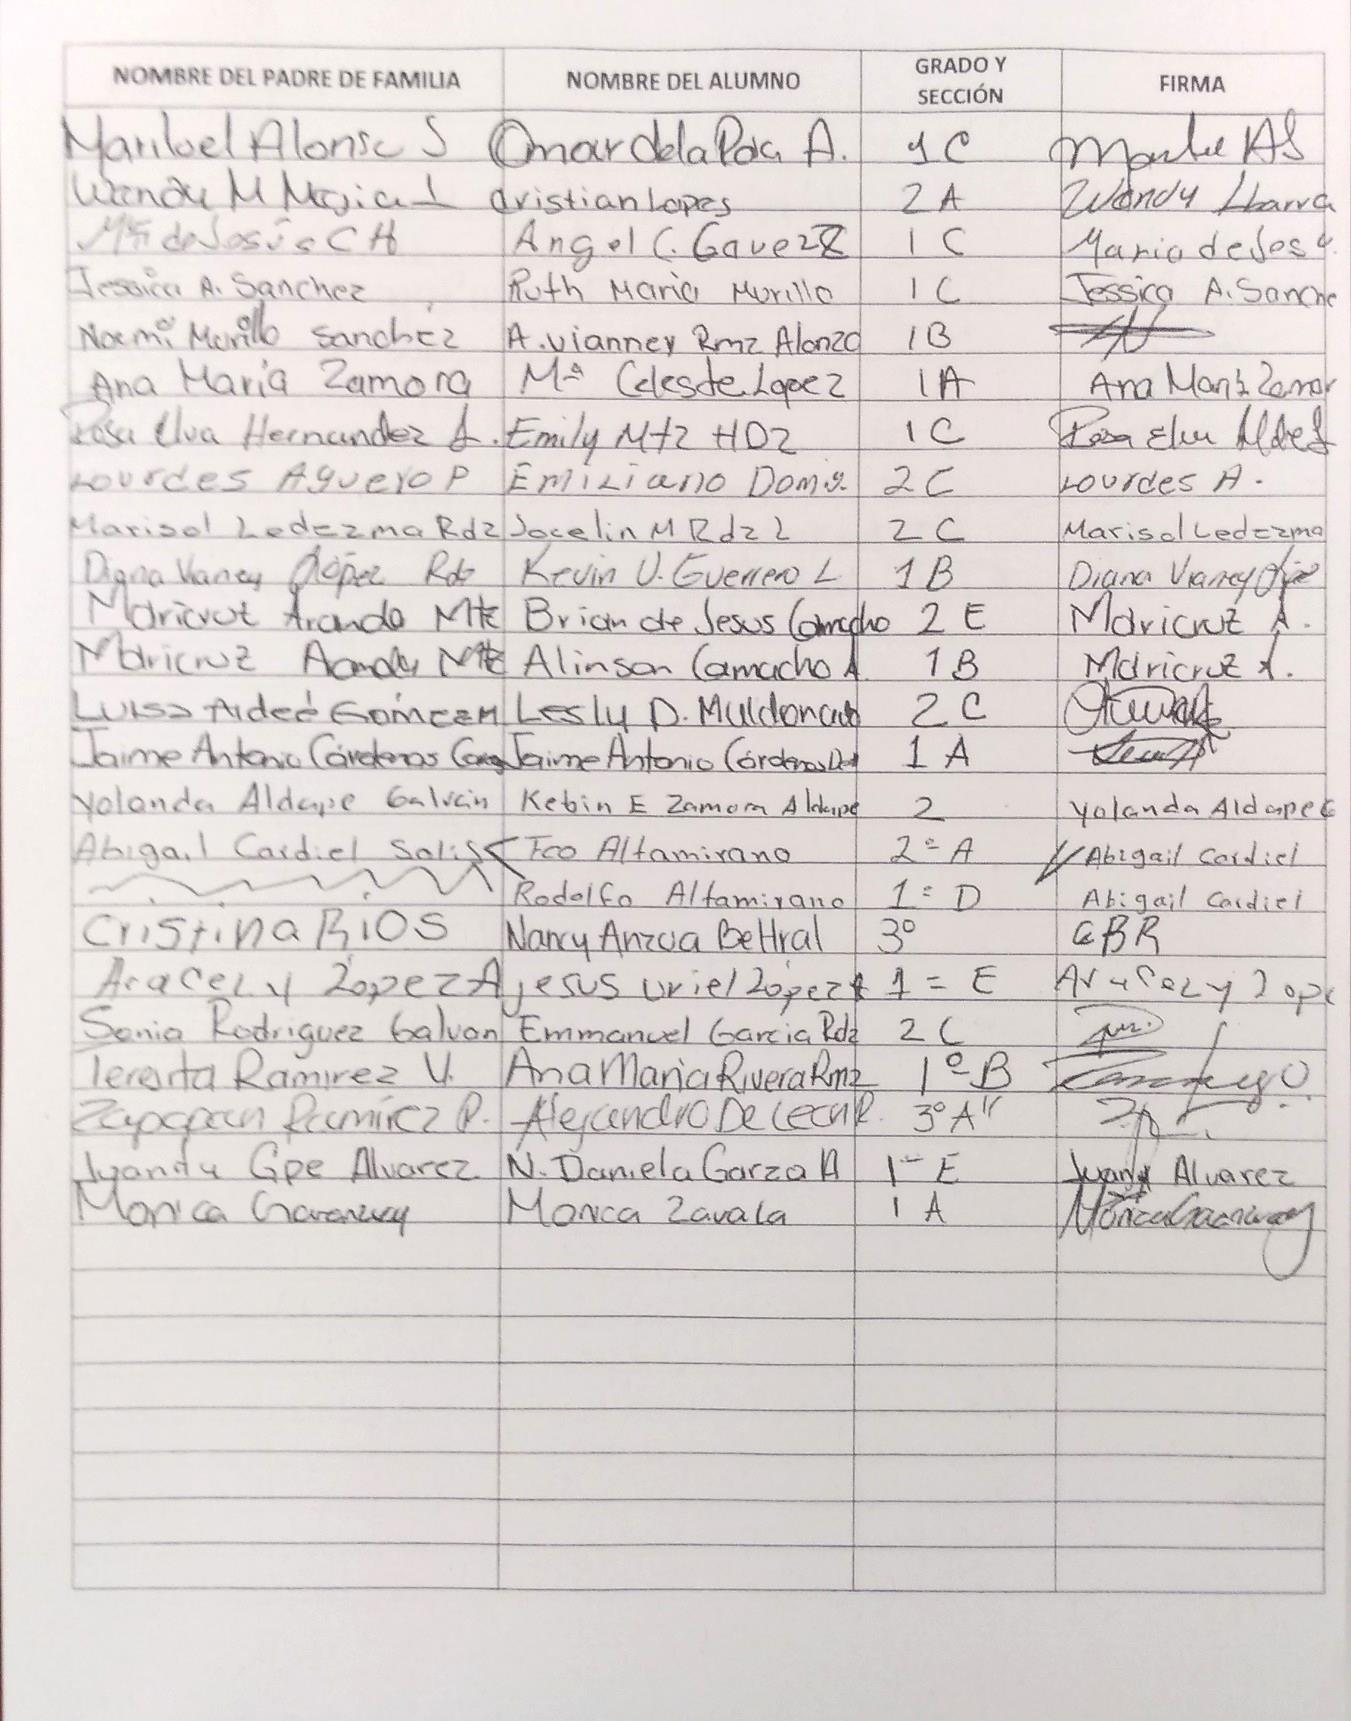 NOMBRE DEL PADRE DE FAMILIA NOMBRE DEL ALUMNO GRADO Y SECCIÓN FIRMA
Maribel Alonso S Omar de la Rosa A. 1 C
Wendy M Cristian Lopes 2 A Wendy Ibarra
Mª de Jesús C H Angel C. 1 C Maria de Jes
Jessica A. Sanchez Ruth Maria Murillo 1 C Jessica A. Sanche
Noemi Murillo Sanchez A. Vianney Rmz Alonzo 1B
Ana Maria Zamora Mª Celeste Lopez 1A Ana
Rosa Elva Hernandez A. Emily Mtz HDZ 1 C Rosa Elva
Lourdes Aguero P Emiliano Dom 2 C Lourdes A.
Marisol Ledezma Rdz Jocelin M Rdz L 2 C Marisol Ledezma
Diana Vianey López Rdz Kevin U. Guerrero L 1 B Diana Vianey
Maricruz Aranda Mtz Brian de Jesus Camacho 2 E Maricruz A.
Maricruz Mtz Alinson Camacho A 1B Maricruz A.
Luisa Aideé Lesly D. Muldonado 2 C
Jaime Antonio Cárdenas Jaime Antonio Cárdenas 1 A
Yolanda Aldape Galván Kebin E Zamora Aldape 2 Yolanda Aldape G
Abigail Cardiel Solis Fco Altamirano 2º A Abigail Cardiel
Rodolfo Altamirano 1º D Abigail Cardiel
Cristina Rios Nancy 3º CBR
Aracely López A Jesus uriel López A 1 = E Aracely
Sonia Rodriguez Galvan Emmanuel Garcia Rdz 2 C
Teresita Ramirez V. Ana Maria Rivera Rmz 1º B
Ramírez P. Alejandro De Leon R. 3º A"
Juanita Gpe Alvarez N. Daniela Garza A 1º E Juany Alvarez
Monica Monica Zavala 1 A